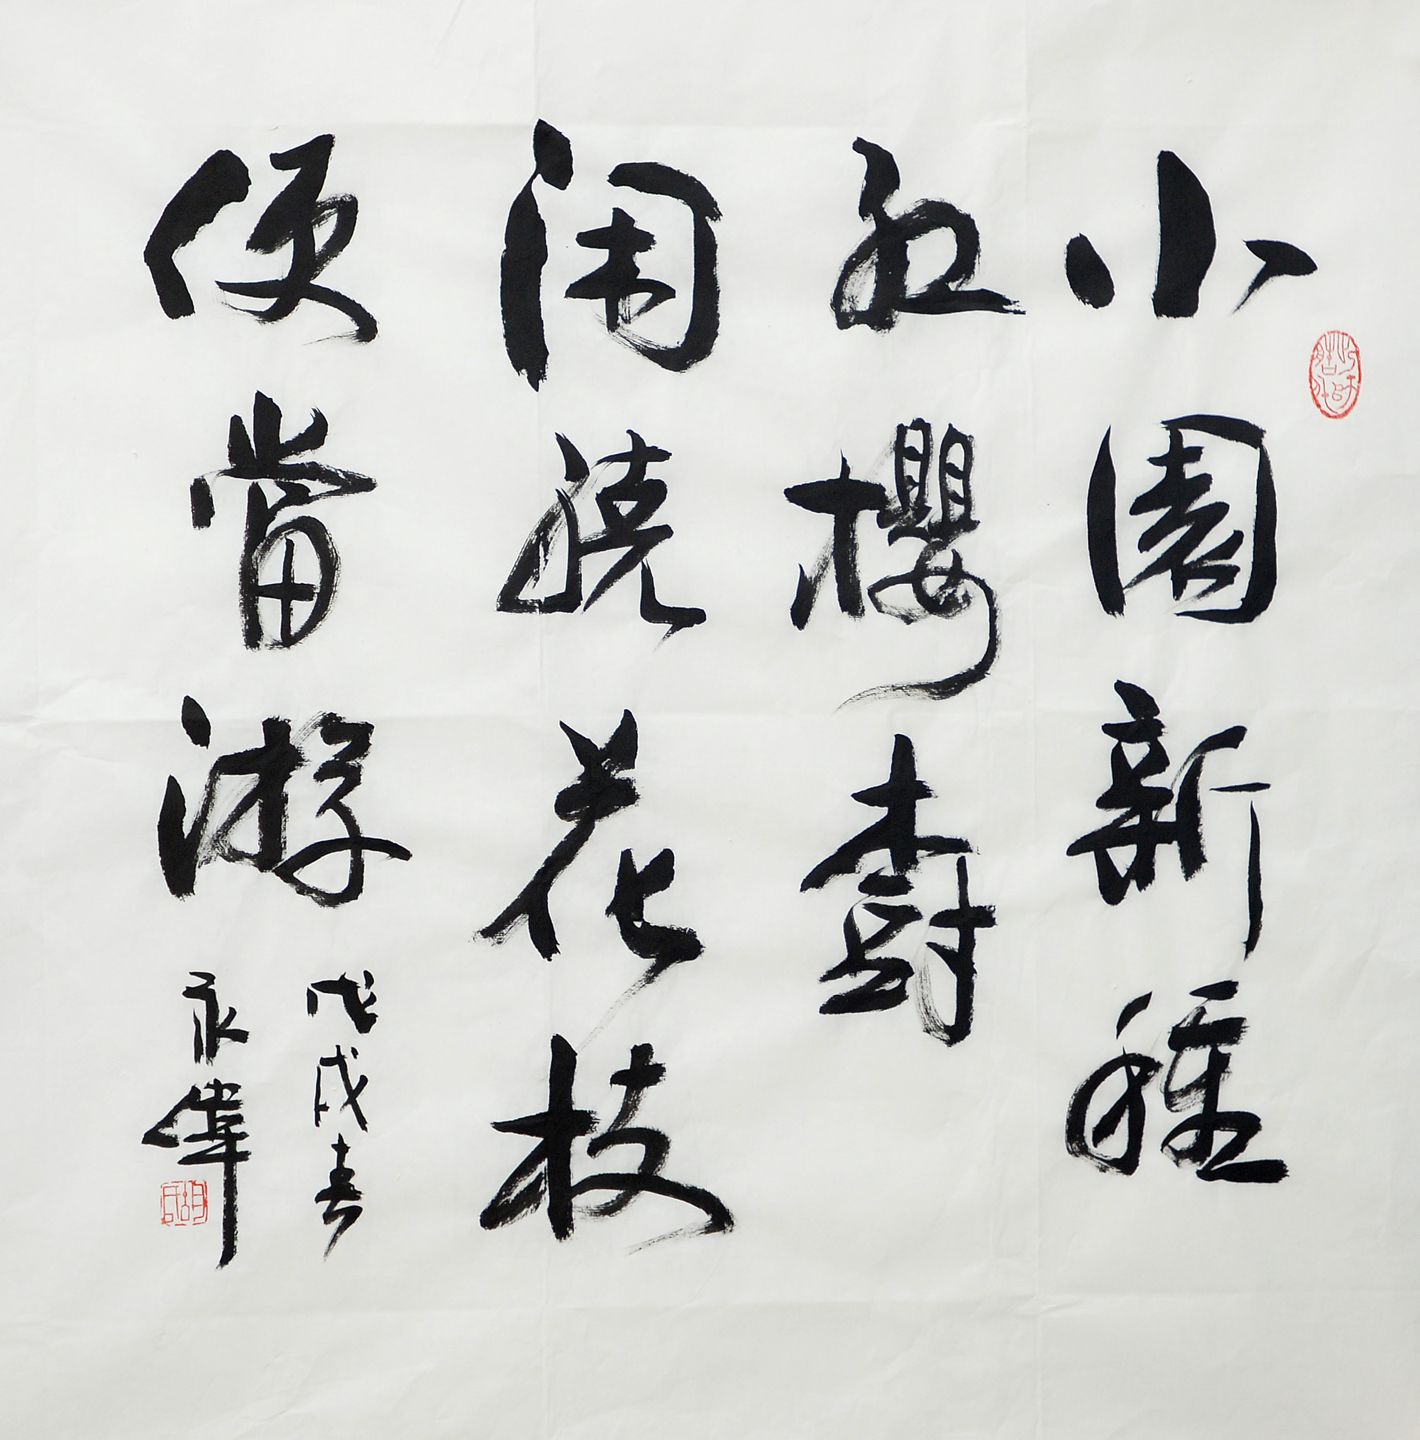 小園新種
紅櫻樹
闲繞花枝
便當游
戊戌春
永偉
胡氏